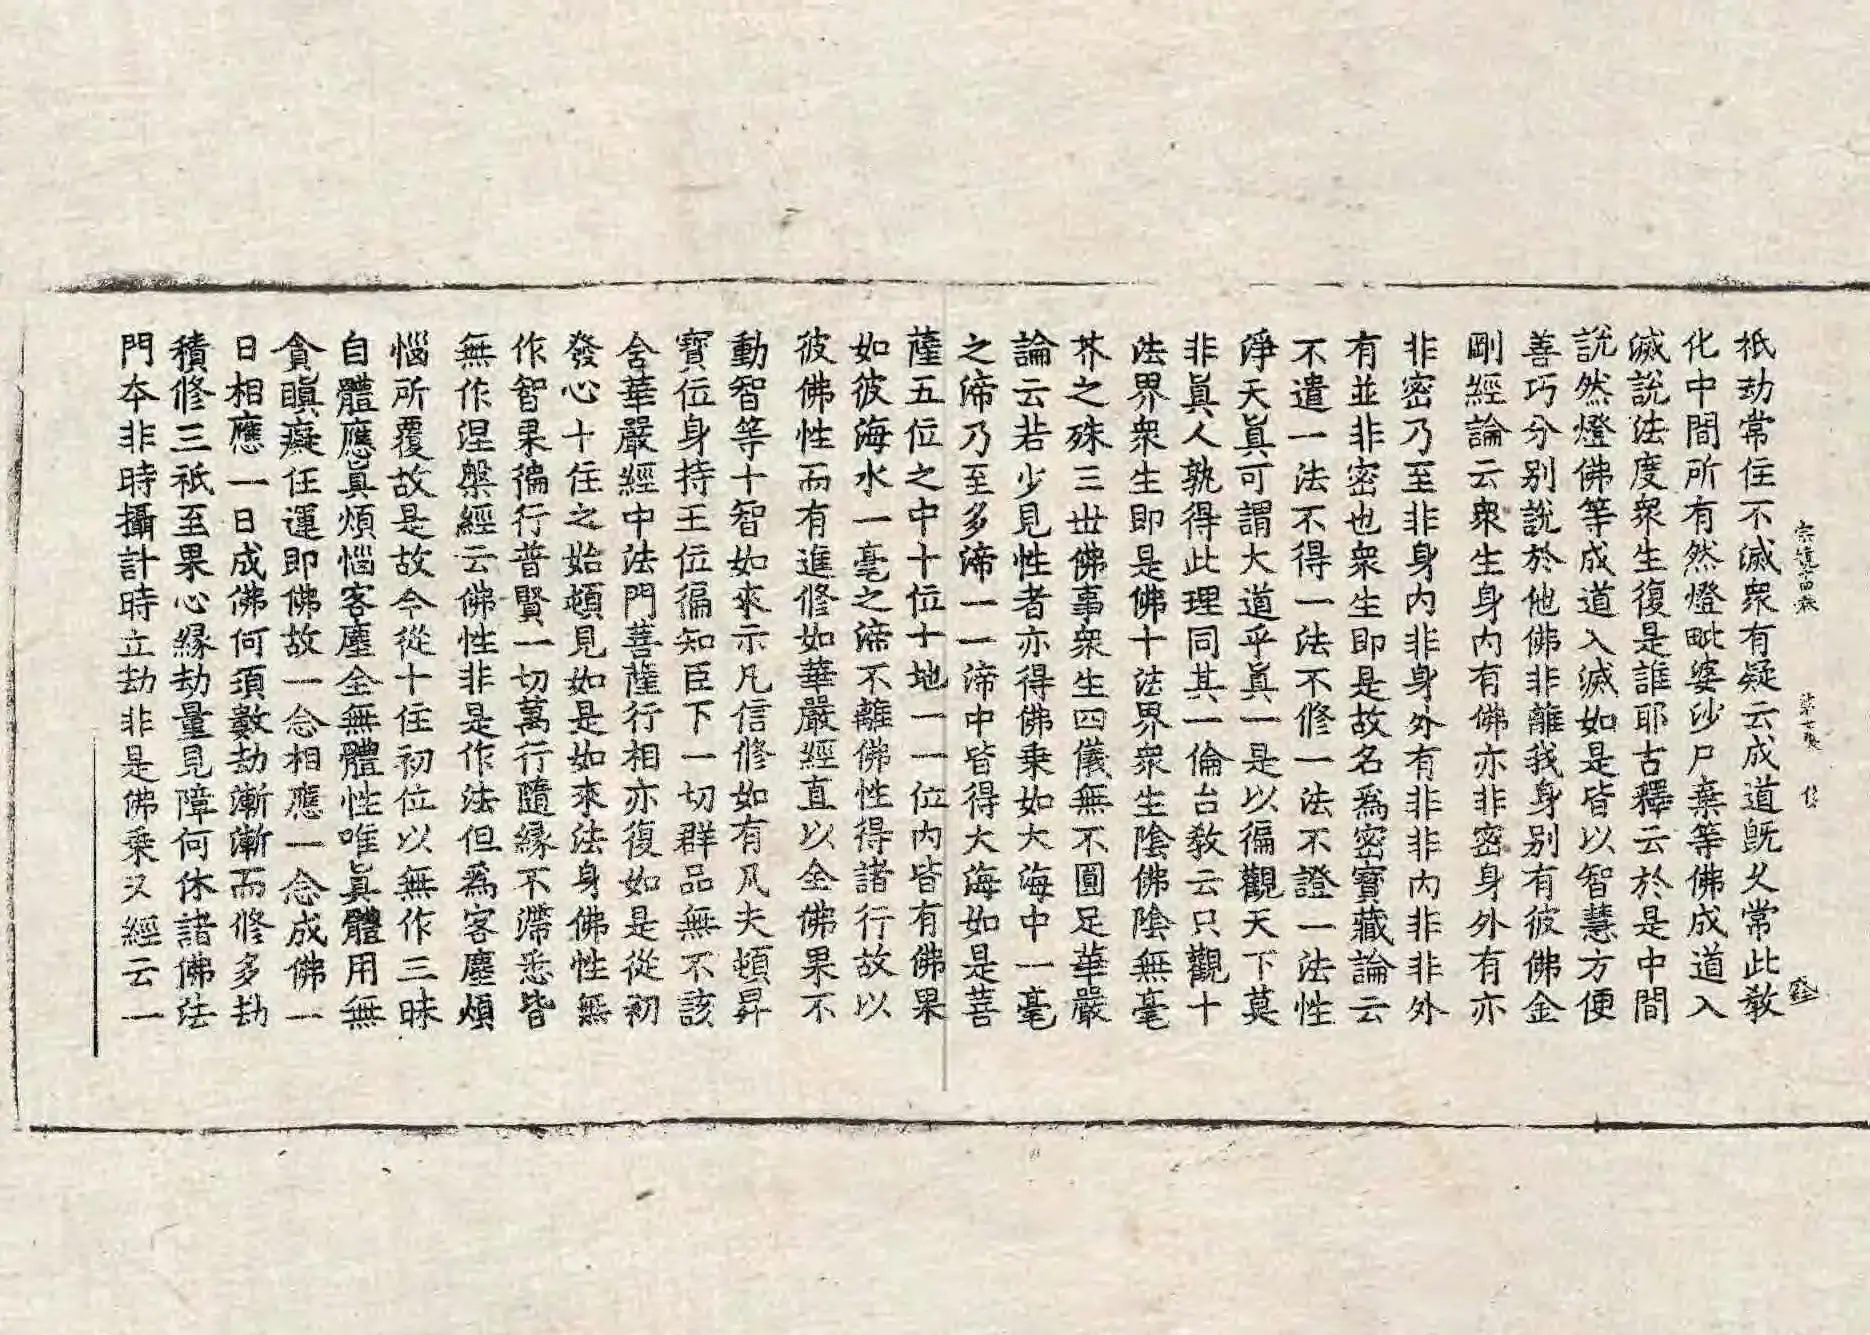 宗鏡十四卷 第七張 俊
祇劫常住不滅衆有疑云成道旣久常此敎
化中間所有然燈毗婆沙尸棄等佛成道入
滅說法度衆生復是誰耶古釋云於是中間
說然燈佛等成道入滅如是皆以智慧方便
善巧分別說於他佛非離我身別有彼佛金
剛經論云衆生身內有佛亦非密身外有亦
非密乃至非身內非身外有非非內非非外
有並非密也衆生即是故名爲密寶藏論云
不遣一法不得一法不修一法不證一法性
淨天眞可謂大道乎眞一是以徧觀天下莫
非眞人孰得此理同其一倫台敎云只觀十
法界衆生即是佛十法界衆生陰佛陰無毫
芥之殊三世佛事衆生四儀無不圓足華嚴
論云若少見性者亦得佛乗如大海中一毫
之渧乃至多渧一一渧中皆得大海如是菩
薩五位之中十位十地一一位內皆有佛果
如彼海水一毫之渧不離佛性得諸行故以
彼佛性而有進修如華嚴經直以全佛果不
動智等十智如來示凡信修如有凡夫頓昇
寶位身持王位徧知臣下一切群品無不該
含華嚴經中法門菩薩行相亦復如是從初
發心十住之始頓見如是如來法身佛性無
作智果徧行普賢一切萬行隨緣不滯悉皆
無作涅槃經云佛性非是作法但爲客塵煩
惱所覆故是故今從十住初位以無作三昧
自體應眞煩惱客塵全無體性唯眞體用無
貪瞋癡任運即佛故一念相應一念成佛一
日相應一日成佛何須數劫漸漸而修多劫
積修三祇至果心緣劫量見障何休諸佛法
門本非時攝計時立劫非是佛乗又經云一